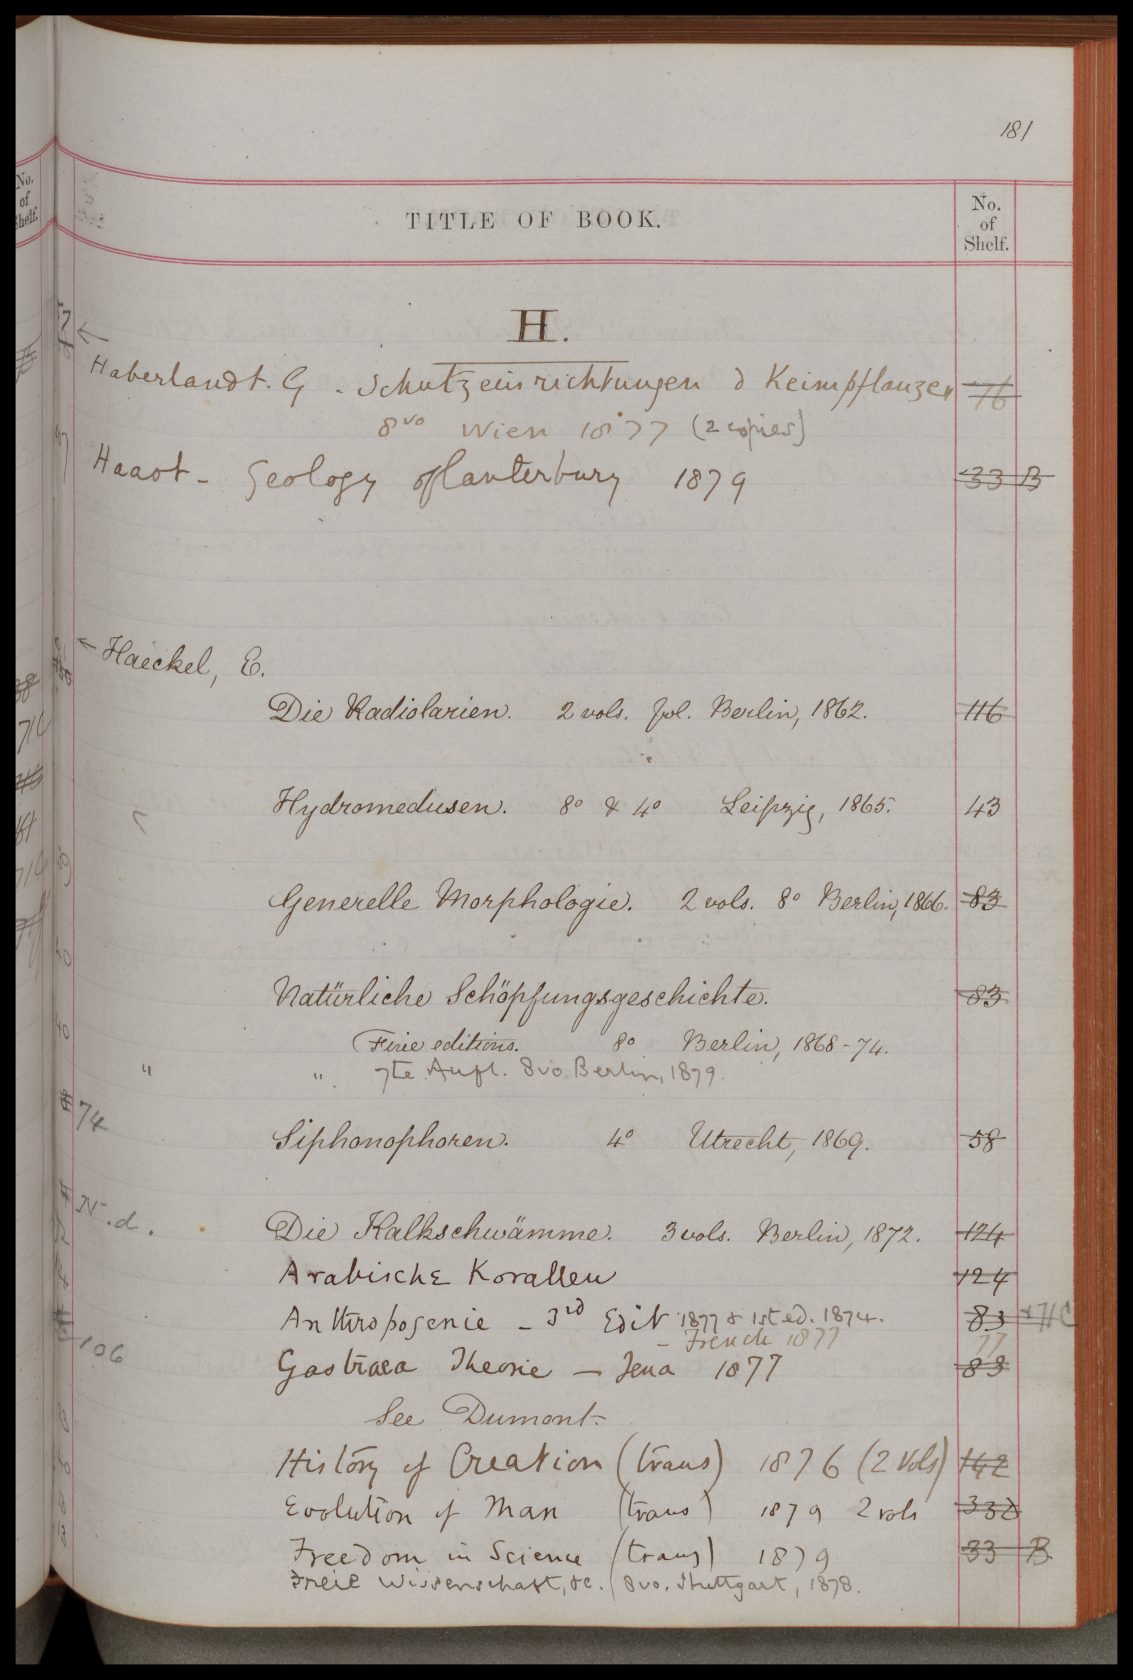 181
TITLE OF BOOK.
No. of Shelf.
H.
Haberlandt. G - Schutzeinrichtungen d Keimpflanzen 76
8vo Wien 1877 (2 copies)
Haast - Geology of Canterbury 1879 33 B
Haeckel, E.
Die Radiolarien. 2 vols. fol. Berlin, 1862. 116
Hydromedusen. 8° & 4° Leipzig, 1865. 43
Generelle Morphologie. 2 vols. 8° Berlin, 1866. 83
Natürliche Schöpfungsgeschichte. 83
Five editions. 8° Berlin, 1868-74.
" " 7te Aufl. 8vo Berlin, 1879.
74
Siphonophoren. 4° Utrecht, 1869. 58
N.d.
Die Kalkschwämme. 3 vols. Berlin, 1872. 124
Arabische Korallen 124
Anthropogenie - 3rd Edit 1877 & 1st ed. 1874. 83
- French 1877 77
106
Gastraea Theorie - Jena 1877 83
See Dumont-
History of Creation (trans) 1876 (2 Vols) 142
Evolution of Man (trans) 1879 2 vols 33
Freedom in Science (trans) 1879 33 B
Freie Wissenschaft, &c. 8vo. Stuttgart, 1878.